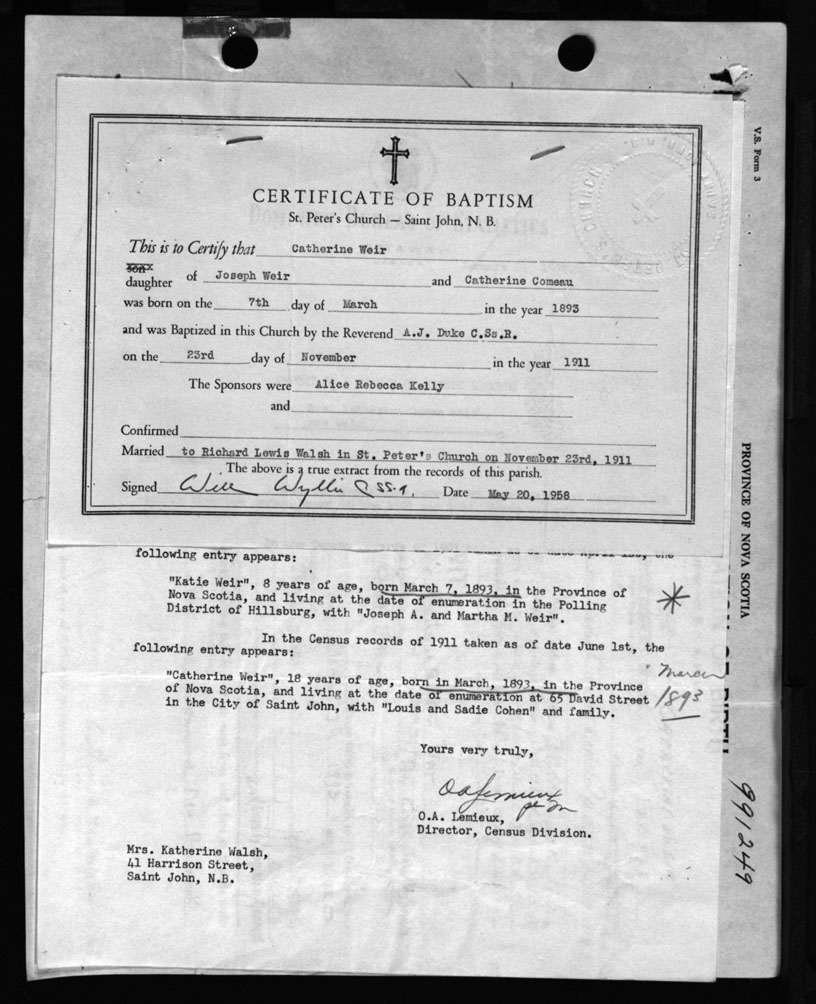 V.S. Form 3
CERTIFICATE OF BAPTISM
St. Peter's Church — Saint John, N. B.
This is to Certify that Catherine Weir
son
daughter of Joseph Weir and Catherine Comeau
was born on the 7th day of March in the year 1893
and was Baptized in this Church by the Reverend A.J. Duke C.Ss.R.
on the 23rd day of November in the year 1911
The Sponsors were Alice Rebecca Kelly
and
Confirmed
Married to Richard Lewis Walsh in St. Peter's Church on November 23rd, 1911
The above is a true extract from the records of this parish.
Signed Will Wyllie CSS.R. Date May 20, 1958
PROVINCE OF NOVA SCOTIA
following entry appears:
"Katie Weir", 8 years of age, born March 7, 1893, in the Province of
Nova Scotia, and living at the date of enumeration in the Polling
District of Hillsburg, with "Joseph A. and Martha M. Weir".
In the Census records of 1911 taken as of date June 1st, the
following entry appears:
"Catherine Weir", 18 years of age, born in March, 1893, in the Province
of Nova Scotia, and living at the date of enumeration at 65 David Street
in the City of Saint John, with "Louis and Sadie Cohen" and family.
March
1893
Yours very truly,
OA Lemieux
per
O.A. Lemieux,
Director, Census Division.
Mrs. Katherine Walsh,
41 Harrison Street,
Saint John, N.B.
991249